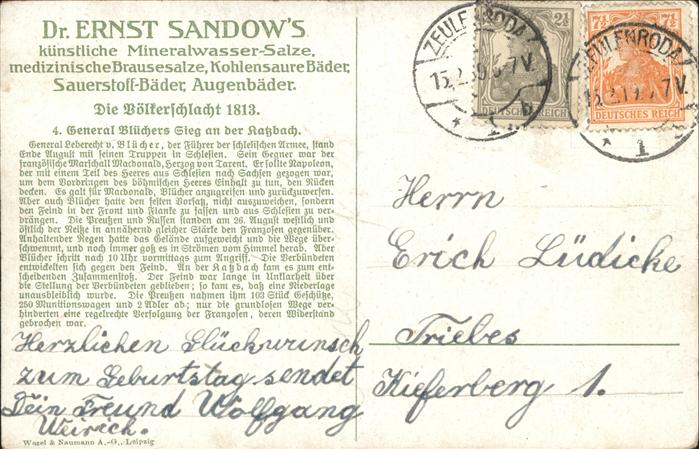 Dr. ERNST SANDOW'S
künstliche Mineralwasser-Salze,
medizinische Brausesalze, Kohlensaure Bäder,
Sauerstoff-Bäder, Augenbäder.
Die Völkerschlacht 1813.
4. General Blüchers Sieg an der Katzbach.
General Leberecht v. Blücher, der Führer der schlesischen Armee, stand
Ende August mit seinen Truppen in Schlesien. Sein Gegner war der
französische Marschall Macdonald, Herzog von Tarent. Er sollte Napoleon,
der mit einem Teil des Heeres aus Schlesien nach Sachsen gezogen war,
um dem Vordringen des böhmischen Heeres Einhalt zu tun, den Rücken
decken. Es galt für Macdonald, Blücher anzugreifen und zurückzuwerfen.
Aber auch Blücher hatte den festen Vorsatz, nicht auszuweichen, sondern
den Feind in der Front und Flanke zu fassen und aus Schlesien zu ver-
drängen. Die Preußen und Russen standen am 26. August westlich und
östlich der Neiße in annähernd gleicher Stärke den Franzosen gegenüber.
Anhaltender Regen hatte das Gelände aufgeweicht und die Wege über-
schwemmt, und noch immer goß es in Strömen vom Himmel herab. Aber
Blücher schritt nach 10 Uhr vormittags zum Angriff. Die Verbündeten
entwickelten sich gegen den Feind. An der Katzbach kam es zum ent-
scheidenden Zusammenstoß. Der Feind war lange in Unklarheit über
die Stellung der Verbündeten geblieben; so kam es, daß eine Niederlage
unausbleiblich wurde. Die Preußen nahmen ihm 103 Stück Geschütze,
250 Munitionswagen und 2 Adler ab; nur die grundlosen Wege ver-
hinderten eine regelrechte Verfolgung der Franzosen, deren Widerstand
gebrochen war.
Herzlichen Glückwunsch
zum Geburtstag sendet
Dein Freund Wolfgang
Weirich.
Wezel & Naumann A.-G., Leipzig
ZEULENRODA
6-7V.
* 1 b
2½ 2½
DEUTSCHES REICH
7½ 7½
DEUTSCHES REICH
ZEULENRODA
15.2.19. 7V.
* 1
Herrn
Erich Lüdicke
Triebes
Kieferberg 1.